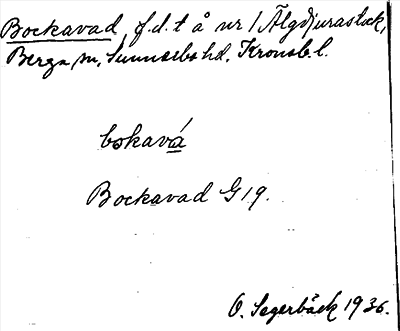 Bockavad, f.d. t å nr 1 Älgdjurastock,
Berga sn, Sunnerbo hd, Kronob. l.
bokavá
Bockavad G 19.
O. Segerbäck 1936.